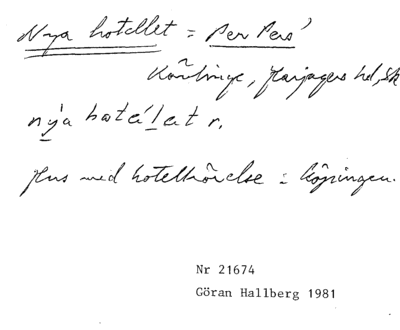 Nya hotellet = Per Pers'
Kävlinge, Harjagers hd, Sk
nýa hotélet r.
Hus med hotellrörelse i köpingen.
Nr 21674
Göran Hallberg 1981